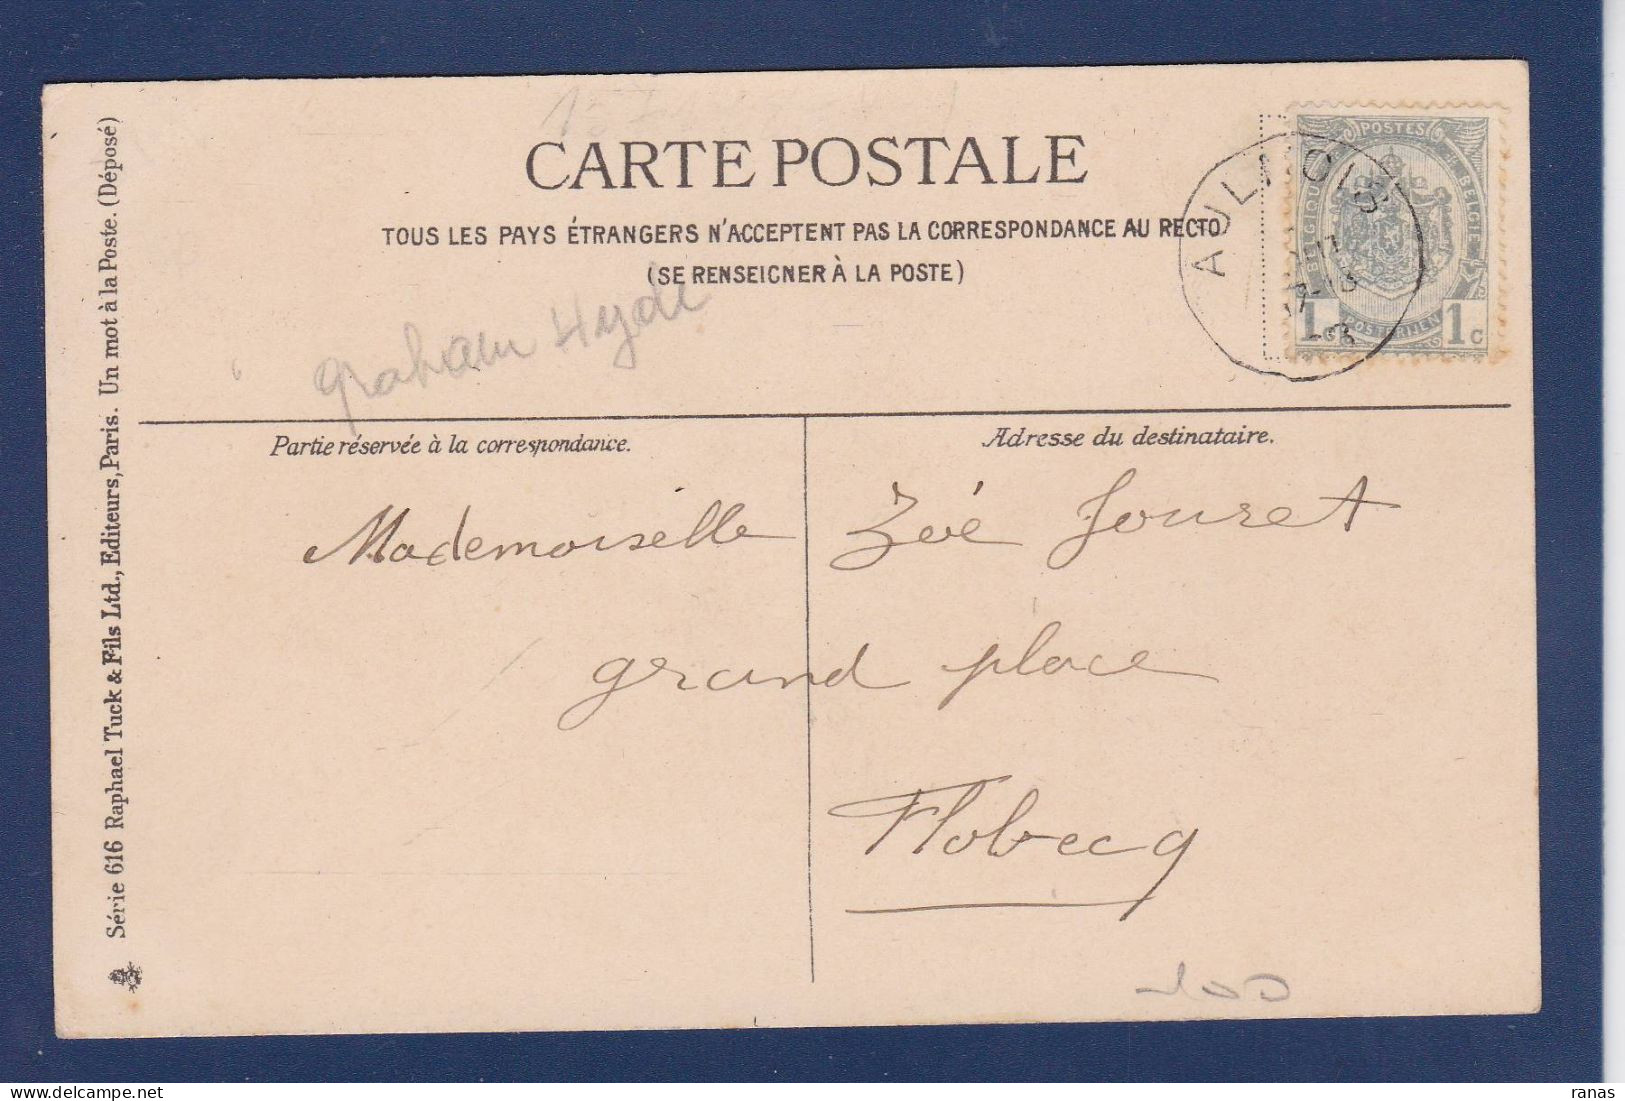 CARTE POSTALE
TOUS LES PAYS ÉTRANGERS N'ACCEPTENT PAS LA CORRESPONDANCE AU RECTO
(SE RENSEIGNER À LA POSTE)
AULNOIS
POSTES
BELGIQUE
BELGIË
1 POSTERIJEN 1c
graham Hyde
Partie réservée à la correspondance.
Adresse du destinataire.
Mademoiselle Zoé Jouret
grand place
Flobecq
100
Série 616 Raphael Tuck & Fils Ltd., Editeurs, Paris. Un mot à la Poste. (Déposé)
ranas